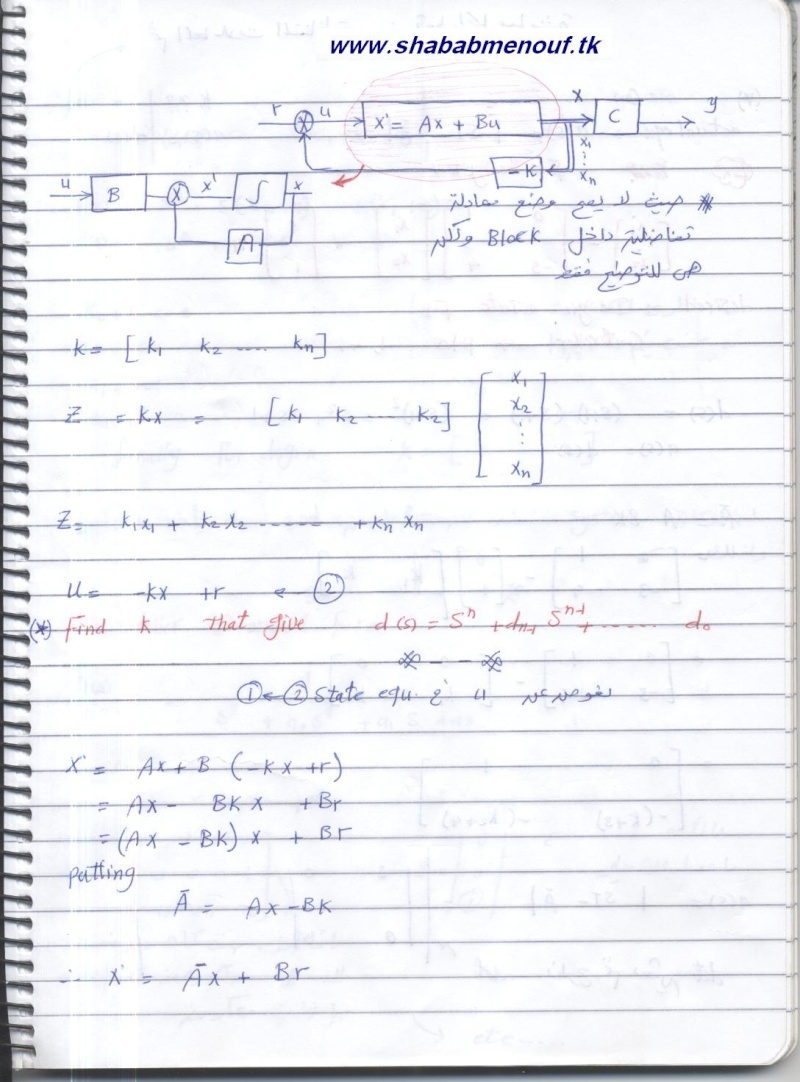 www.shababmenouf.tk
r u X' = Ax + Bu x C y
x1
⋮
xn
-K
u B X x' ∫ x
A
* حيث لا يصح وضع معادلة
تفاضلية داخل Block ولكن
هى للتوضيح فقط
K = [ k1 k2 .... kn ]
Z = kx = [ k1 k2 ..... k2 ] [ x1 x2 ⋮ xn ]
Z = k1x1 + k2x2 ------ + kn xn
U = -kx + r ← ②
(*) Find k that give d(s) = S^n + d_{n-1} S^{n-1} + ...... d0
نعوض عن u فى State equ. ② ← ①
X' = Ax + B (-kx + r)
= Ax - BKx + Br
= (Ax - BK) x + Br
putting
Ā = Ax - BK
∴ X' = Āx + Br